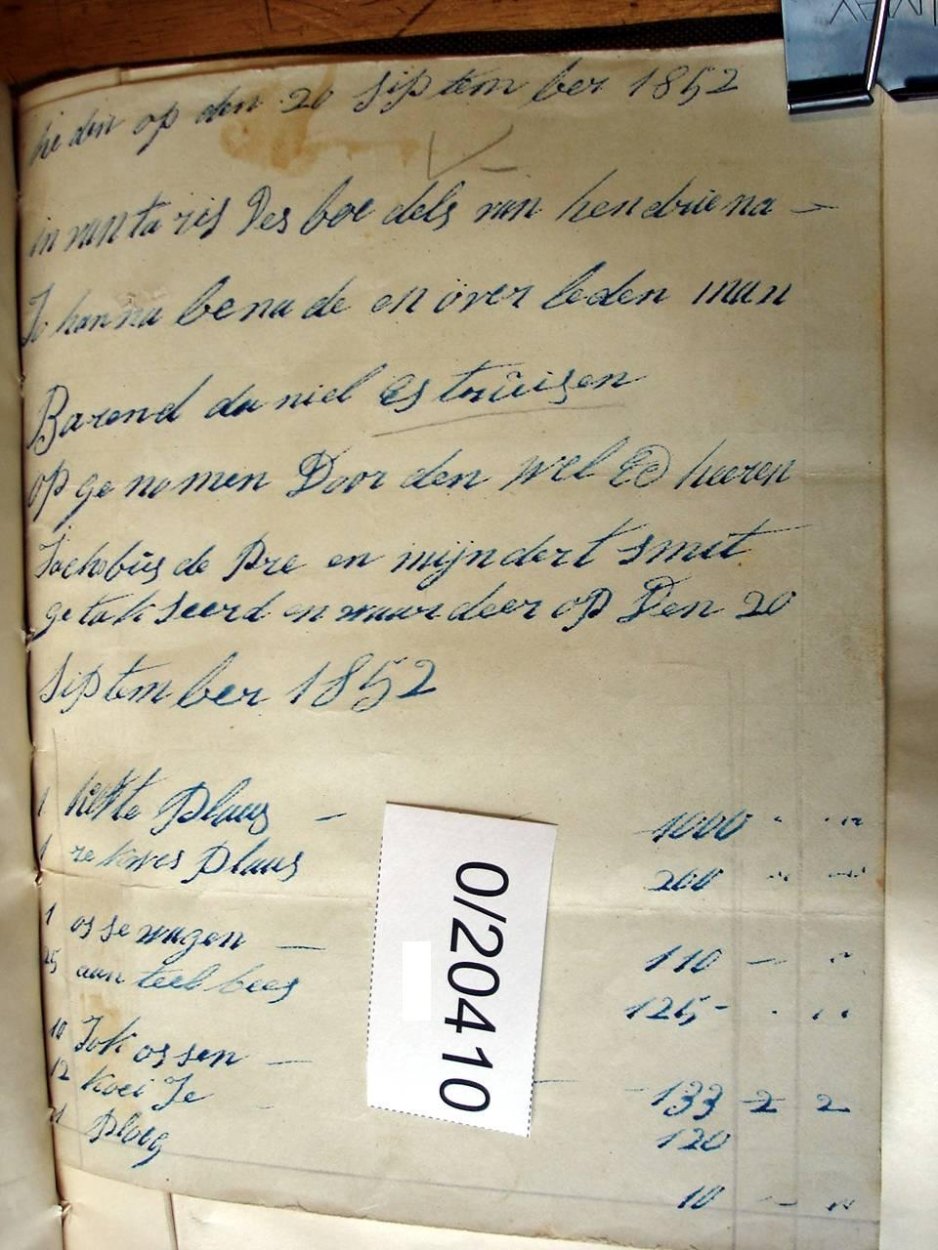 he den op den 20 Siptem ber 1852
in vanta ris Des boe dels van hendrie na -
Jo hanna bena de en over leden man
Barend da niel Es truisen
op ge no men Door den Wel Ed heeren
Jackobus de Pre en mijndert smit
ge tak seerd en waardeer op Den 20
Siptember 1852
1 Plaas - 1000 " "
1 Plaas 200 " "
1 os se wagen - 110 - "
25 aan teel bees 125 - " "
10 Jok os sen - 133 - 2 2
12 koei Je - 120
1 Ploeg 10 - "
0/20410